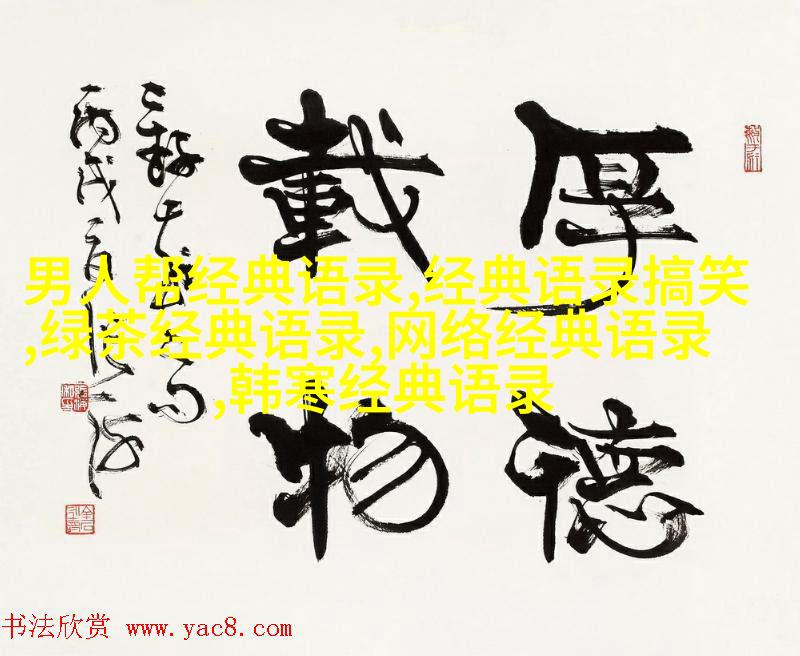 厚德
載物
丙戌
男人帮经典语录,经典语录搞笑
,绿茶经典语录,网络经典语录
,韩寒经典语录
书法欣赏 www.yac8.com